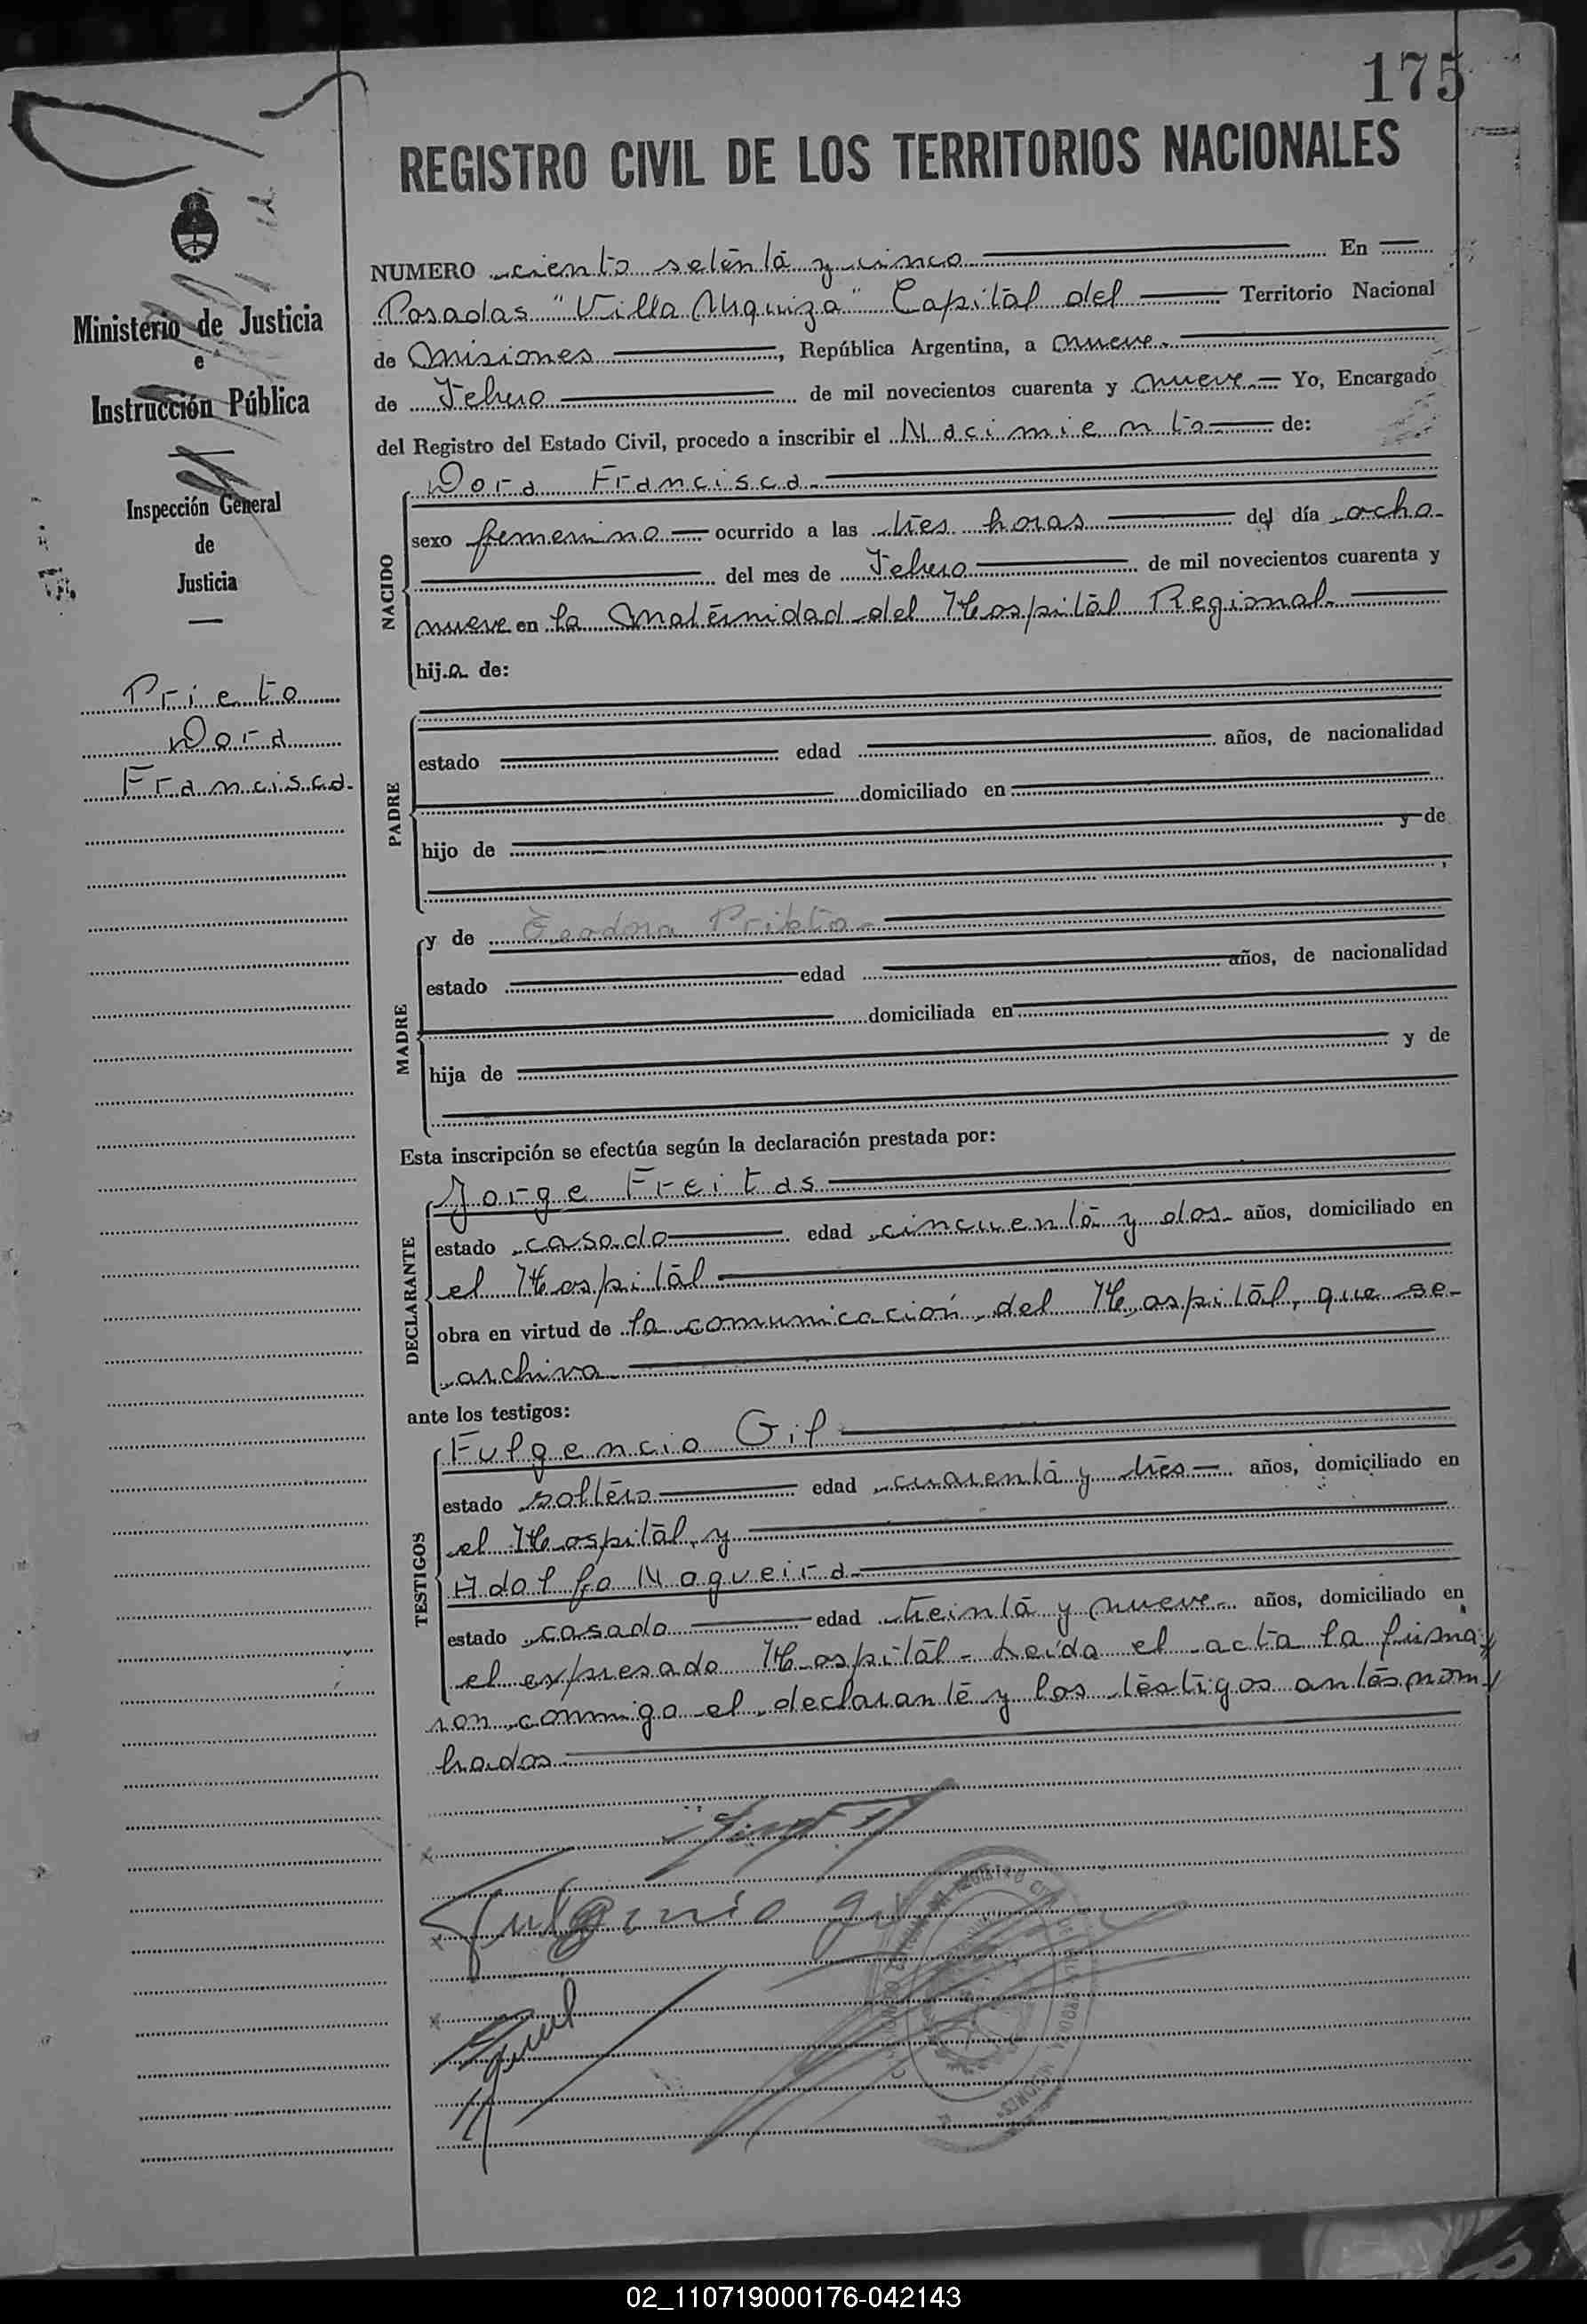 175
REGISTRO CIVIL DE LOS TERRITORIOS NACIONALES
Ministerio de Justicia
e
Instrucción Pública
Inspección General
de
Justicia
Prieto
Dora
Francisca.
NUMERO ciento setenta y cinco En
Posadas "Villa Urquiza" Capital del Territorio Nacional
de Misiones, República Argentina, a nueve.
de Febrero de mil novecientos cuarenta y nueve. Yo, Encargado
del Registro del Estado Civil, procedo a inscribir el Nacimiento de:
NACIDO
Dora Francisca.
sexo femenino ocurrido a las tres horas del día ocho
del mes de Febrero de mil novecientos cuarenta y
nueve en la Maternidad del Hospital Regional.
hija de:
PADRE
estado edad años, de nacionalidad
domiciliado en
hijo de y de
,
MADRE
y de Teodora Prieto
estado edad años, de nacionalidad
domiciliada en
hija de y de
Esta inscripción se efectúa según la declaración prestada por:
DECLARANTE
Jorge Freitas
estado casado edad cincuenta y dos años, domiciliado en
el Hospital
obra en virtud de la comunicación del Hospital, que se
archiva
ante los testigos:
TESTIGOS
Fulgencio Gil
estado soltero edad cuarenta y tres años, domiciliado en
el Hospital, y
Adolfo Naqueira
estado casado edad treinta y nueve años, domiciliado en
el expresado Hospital - Leída el acta la firma
ron conmigo el declarante y los testigos antes nom
brados
Fulgencio Gil
MISIONES
02_110719000176-042143